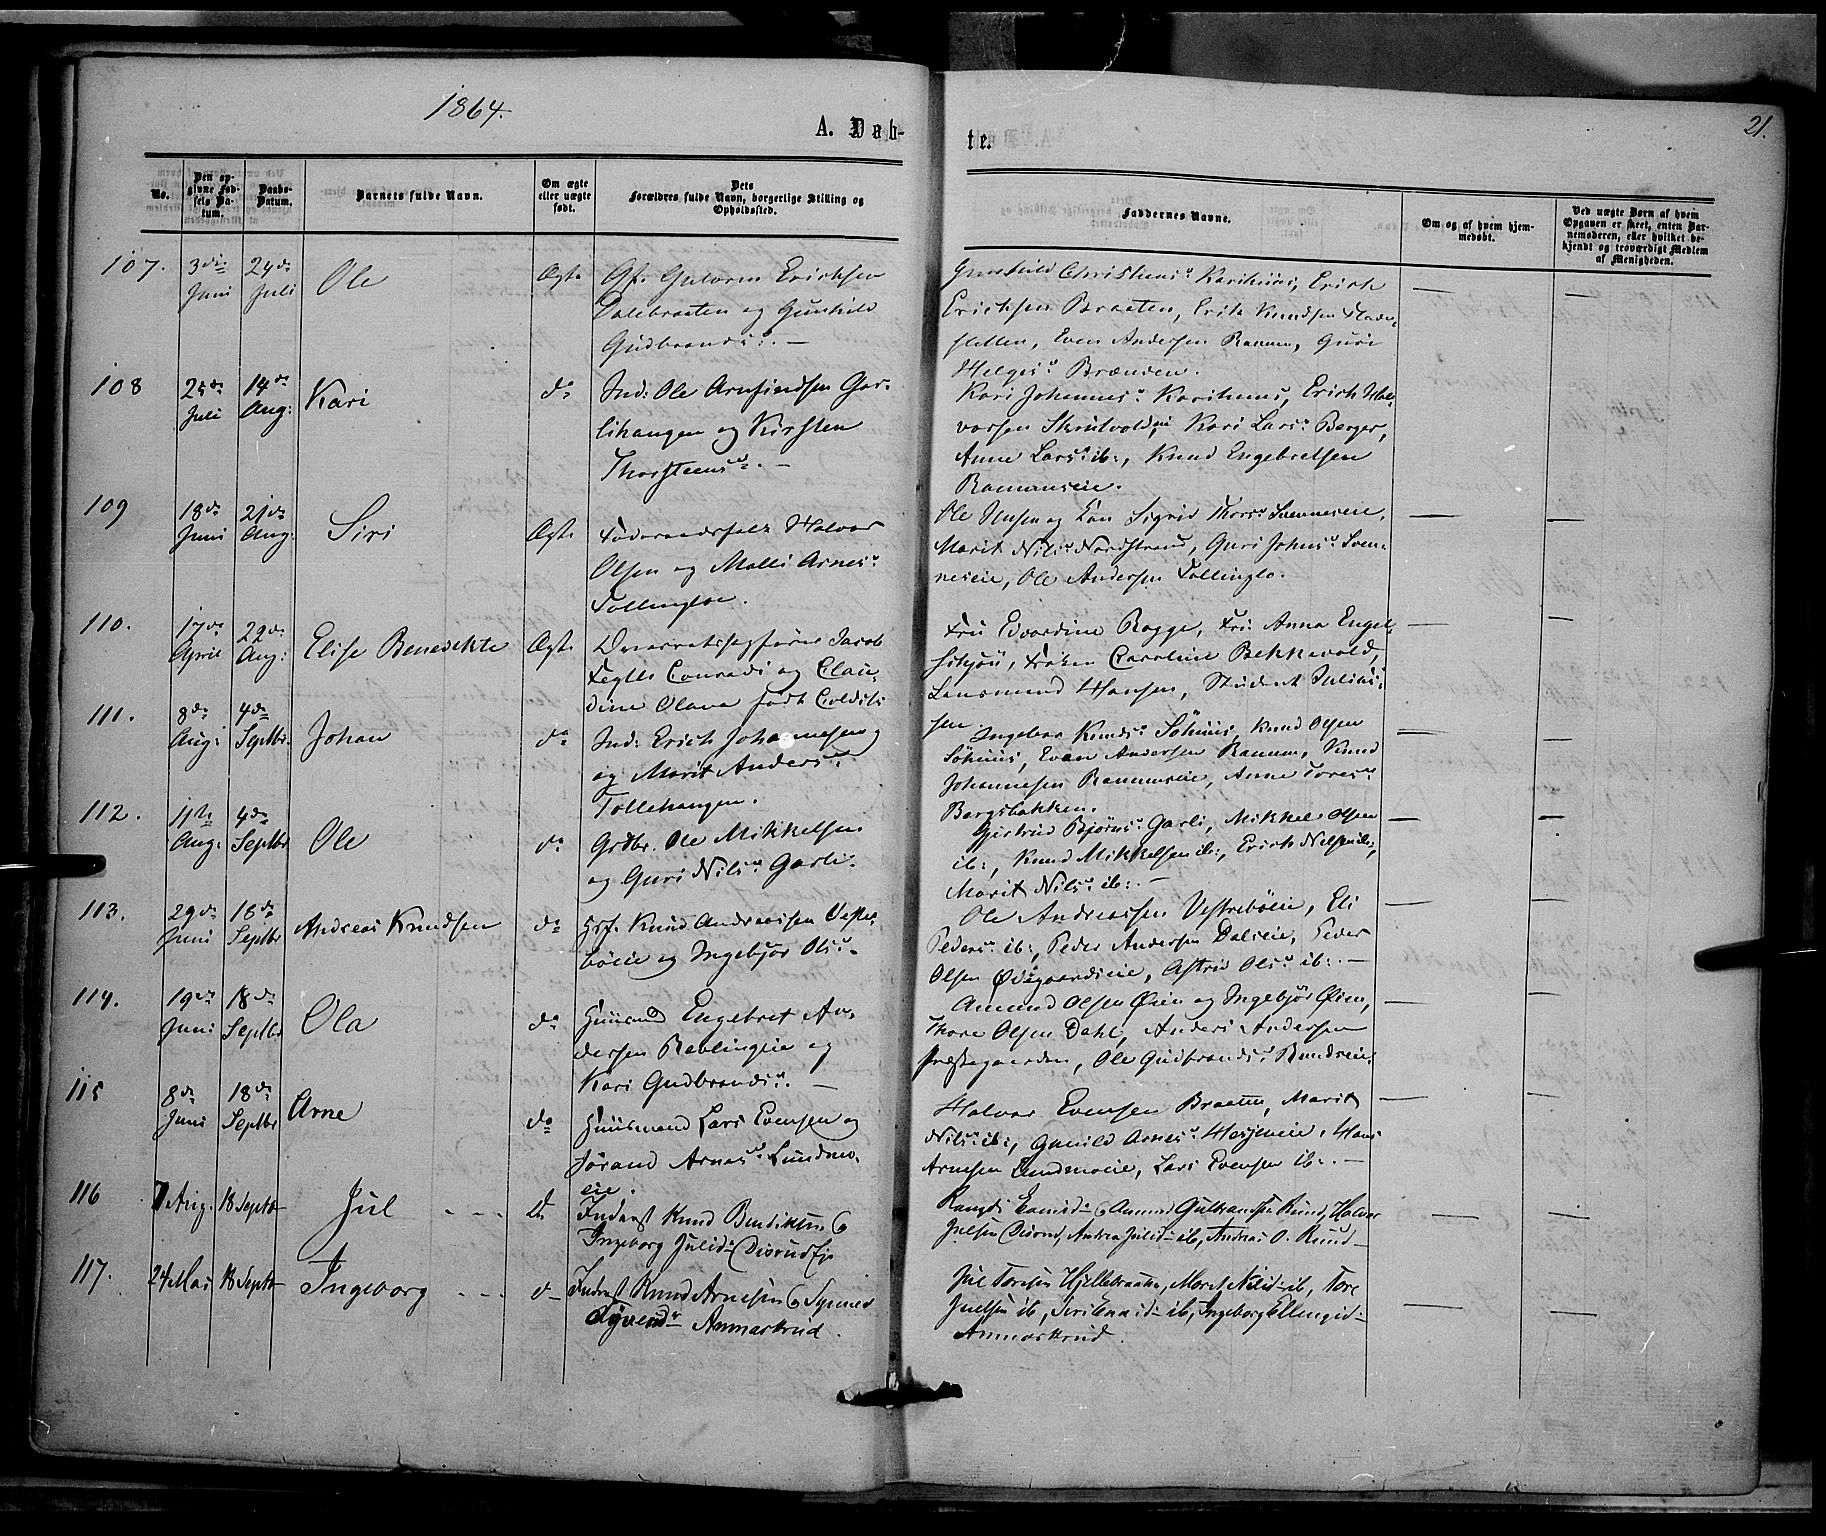 1864.
A. Døb-
te.
21.
No.
Den op-
givne Fød-
sels Da-
tum.
Daabs-
Datum.
Barnets fulde Navn.
Om ægte
eller uægte
født.
Dets
Forældres fulde Navn, borgerlige Stilling og
Opholdssted.
Faddernes Navne.
Om og af hvem hjem-
medøbt.
Ved uægte Børn af hvem
Opgaven er skeet, enten Bar-
nemoderen, eller hvilket be-
kjendt og troværdigt Medlem
af Menigheden.
107. 3die Juni 24de Juli Ole Ægte Gf. Gulovin Ericksen
Dalebraaten og Gunhild
Gudbrandsd: —
Gunhild Christensd: Karihuus, Erich
Ericksen Braaten, Erik Knudsen
sletten, Even Andersen Ranum, Guri
Helgesd Brænden.
108 25de Juli 14de Aug: Kari do Ind: Ole Arnfindsen Gar-
lihaugen og Kirsten
Thorsteensd. —
Kari Johannesd: Karihuus, Erich Hal-
vorsen Skrutvold, Kari Larsd: Berger,
Anne Larsd: ib:, Knud Engebretsen
Ranumseie.
109 18de Juni 21de Aug: Siri Ægte Føderaadsfolk Halvor
Olsen og Malli Arnesd:
Tollingløe.
Ole Olsen og Kone Sigrid Thorsd: Svenneseie,
Marit Nilsd: Nordstrand, Guri Johnsd: Sven-
neseie, Ole Andersen Tollinglø.
110. 17de April 29de Aug: Elise Benedikte Ægte Overretssagfører Jacob
Conradi og Clau-
dine Olava født Colditz
Fru Edvardine Rogge, Fru Anna Engel-
skjøn, Frøken Caroline Bekkevold,
Lensmand Hansen, Student Julius-
sen.
111. 8de Aug: 4de Septbr. Johan do Ind: Erich Johannesen
og Marit Andersd:
Tollehaugen.
Ingebor Knudsd: Søhuus, Knud Olsen
Søhuus, Even Andersen Ranum, Knud
Johannesen Ranumseie, Anne Toresd:
Bergsbakken.
112. 11te Aug: 4de Septbr Ole do Grdbr. Ole Mikkelsen
og Guri Nilsd Garli.
Gjertrud Bjørnsd: Garli, Mikkel Olsen
ib:, Knud Mikkelsen ib:, Erich Nilsen ib:,
Marit Nilsd: ib: —
113. 29de Juni 18de Septbr Andreas Knudsen do Grf. Knud Andreassen Vestre-
bøeie og Ingebjør Olsd.
Ole Andreassen Vestrebøeie, Eli
Pedersd: ib:, Peder Andersen Dalseie, Peder
Olsen Ødegaardseie, Astrid Olsd: ib: —
114. 19de Juni 18de Septbr Ola do Huusmd Engebret An-
dersen Reblingeie og
Kari Gudbrandsd. —
Amund Olsen Øien og Ingebjør Øien,
Thore Olsen Dahl, Anders Andersen
Præstegaarden, Ole Gudbrandsd: Rundseie.
115 8de Juni 18de Septbr Arne do Huusmand Lars Evensen og
Jørand Arnesd: Lundmo-
eie.
Halvor Evensen Braaten, Marit
Nilsd: ib:, Gunild Arnesd: Hesjeneie, Hans
Arnesen Lundmoeie, Lars Evensen ib: —
116 7 Aug. 18 Septbr Jul do Inderst Knud Bendiksen &
Ingeborg Julsd: Disrud Eje
Rangdi Evensd: & Amund Gulbransen Ruud, Halvor
Julsen Disrud, Andrea Julsd: ib, Andreas O. Ruud
117. 24 Mai 18 Septbr Ingeborg do Inderst Knud Arnesen & Synnev
Øyvendsd: Anmarkrud.
Jul Toresen Hjellebraaten, Marit Nilsd: ib, Tore
Juelsen ib, Siri Evensd: ib, Ingeborg Ellingsd:
Anmarkrud.